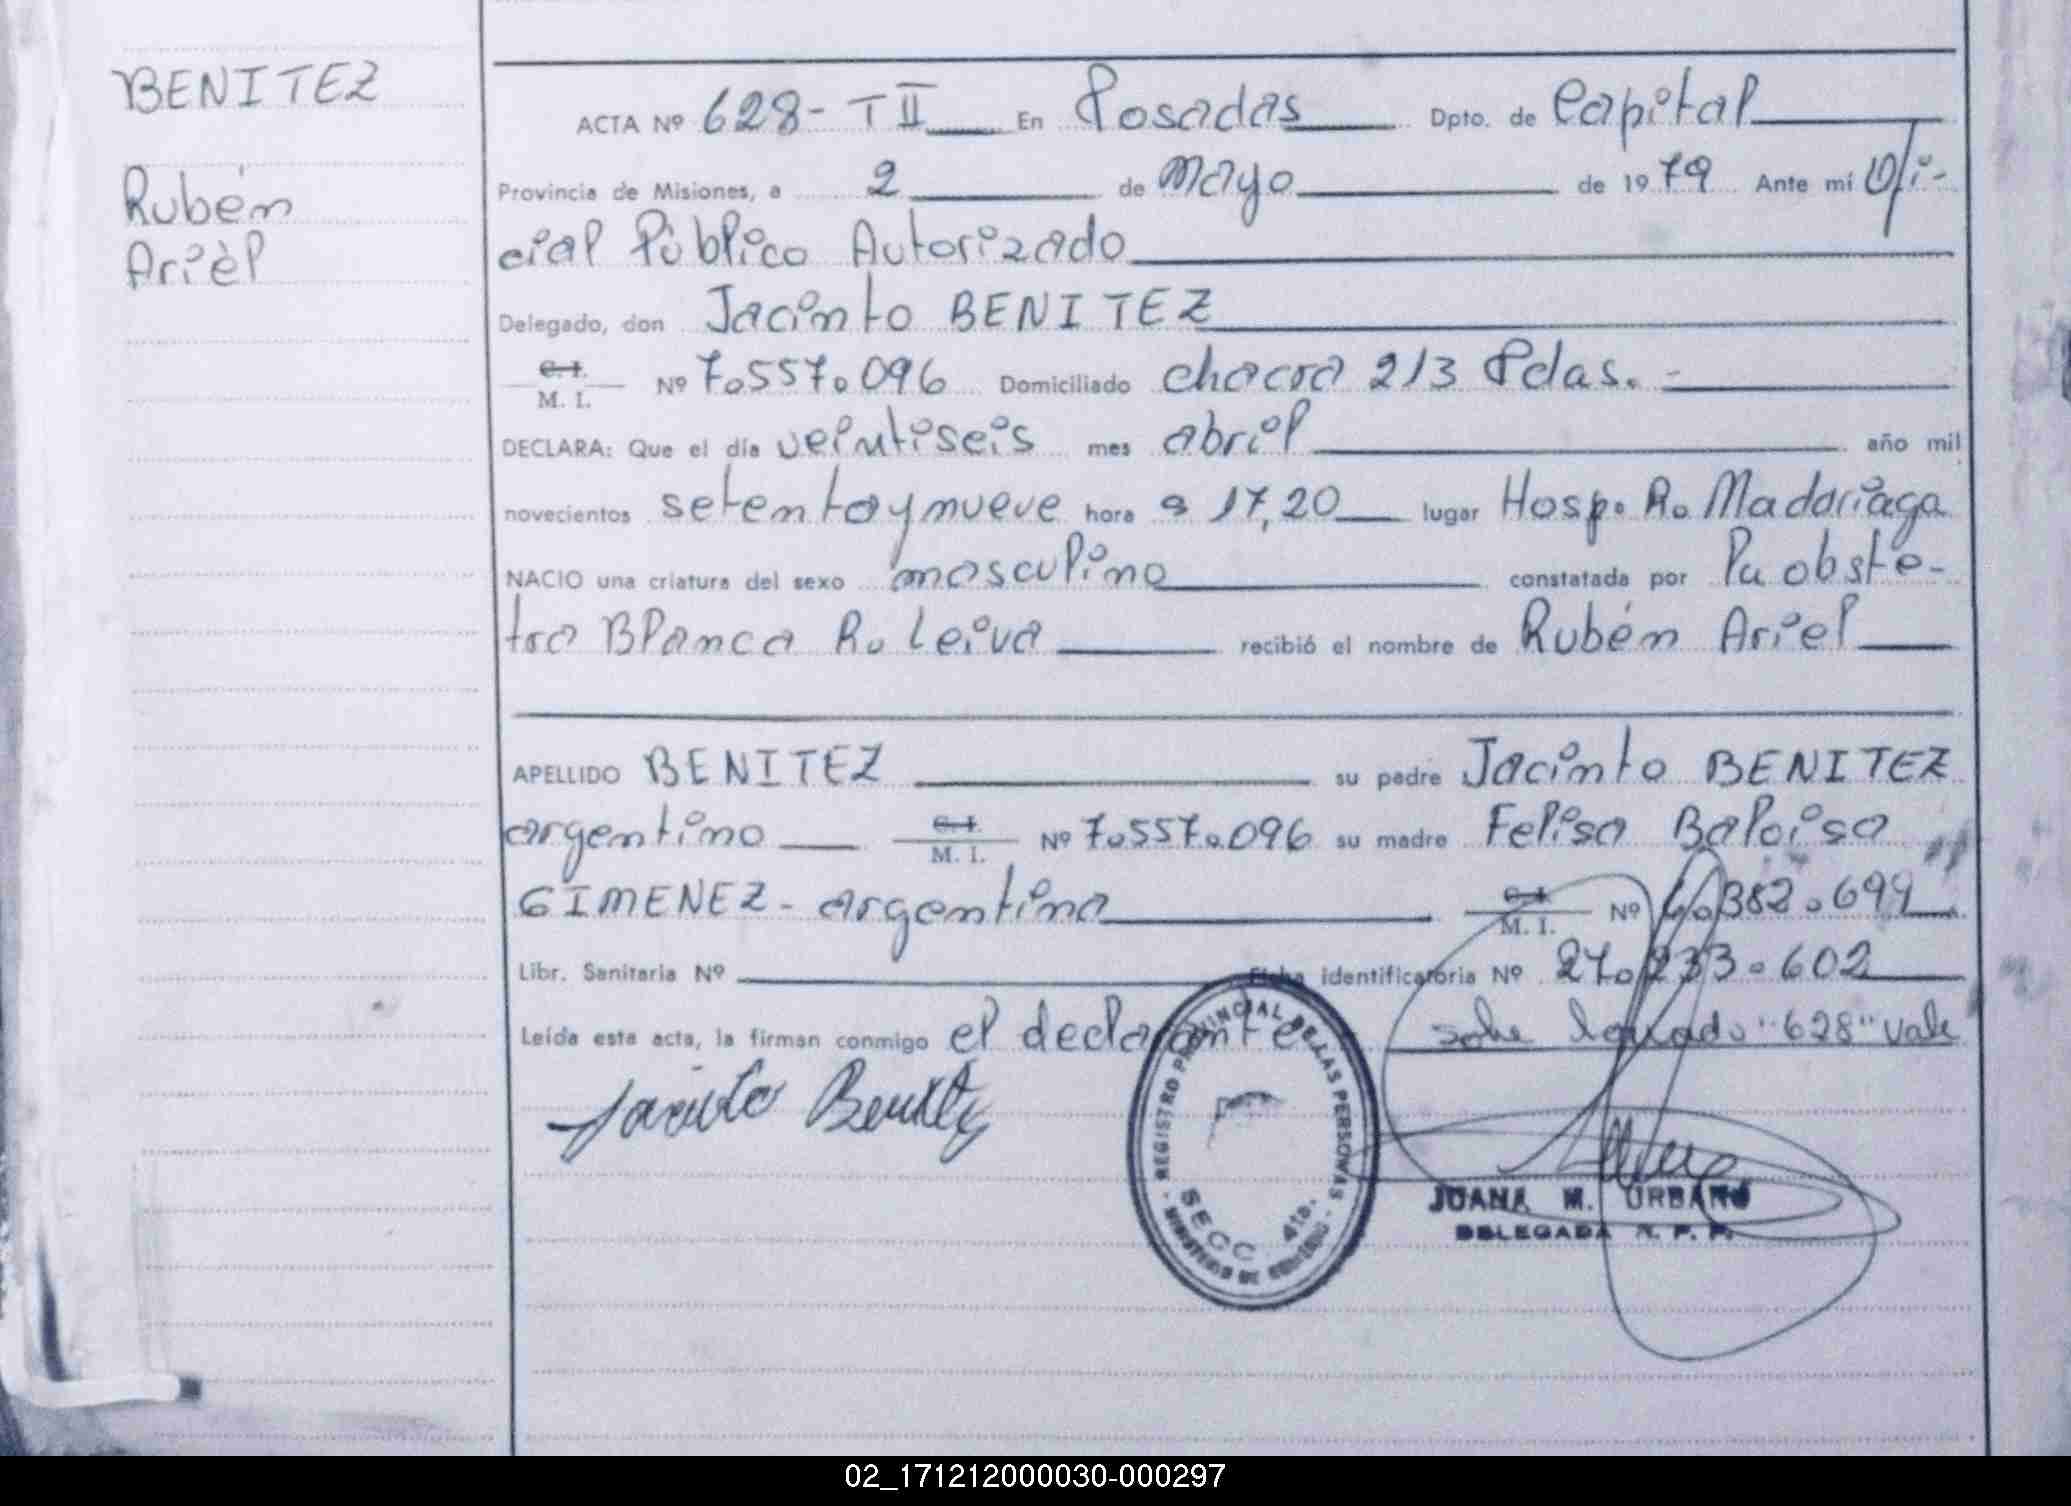 BENITEZ
Rubén
Arièl
ACTA Nº 628- T II En Posadas Dpto. de Capital
Provincia de Misiones, a 2 de Mayo de 1979 Ante mí Ofi-
cial Público Autorizado
Delegado, don Jacinto BENITEZ
C.I.
M. I. Nº 7.557.096 Domiciliado chacra 213 Pdas. -
DECLARA: Que el día veintiseis mes abril año mil
novecientos setentaynueve hora s 17,20 lugar Hosp. R. Madariaga
NACIO una criatura del sexo masculino constatada por la obste-
tra Blanca R. Leiva recibió el nombre de Rubén Ariel
APELLIDO BENITEZ su padre Jacinto BENITEZ
argentino C.I.
M. I. Nº 7.557.096 su madre Felisa Baloisa
GIMENEZ - argentina C.I.
M. I. Nº 382.699
Libr. Sanitaria Nº Ficha identificatoria Nº 27.233.602
Leída esta acta, la firman conmigo el declarante sobre "628" vale
Jacinto Benitez
REGISTRO PROVINCIAL DE LAS PERSONAS
SECC. 4ta.
MINISTERIO DE GOBIERNO
JUANA M. URBANO
DELEGADA R. P. P.
02_171212000030-000297